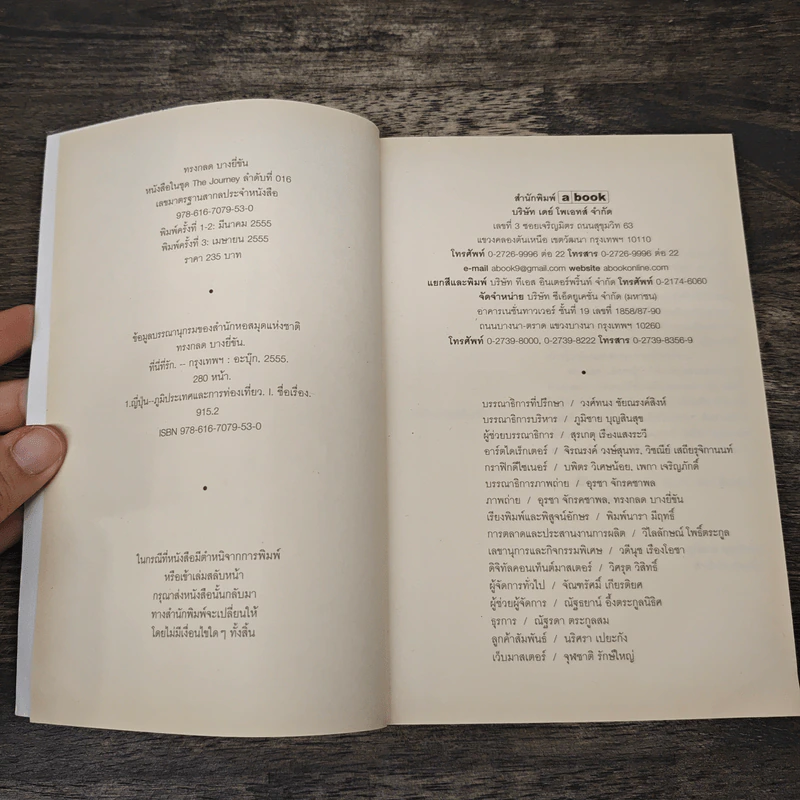 ทรงกลด บางยี่ขัน
หนังสือในชุด The Journey ลำดับที่ 016
เลขมาตรฐานสากลประจำหนังสือ
978-616-7079-53-0
พิมพ์ครั้งที่ 1-2: มีนาคม 2555
พิมพ์ครั้งที่ 3: เมษายน 2555
ราคา 235 บาท
ข้อมูลบรรณานุกรมของสำนักหอสมุดแห่งชาติ
ทรงกลด บางยี่ขัน.
ที่นี่ที่รัก. -- กรุงเทพฯ : อะบุ๊ก, 2555.
280 หน้า.
1.ญี่ปุ่น--ภูมิประเทศและการท่องเที่ยว. I. ชื่อเรื่อง.
915.2
ISBN 978-616-7079-53-0
ในกรณีที่หนังสือมีตำหนิจากการพิมพ์
หรือเข้าเล่มสลับหน้า
กรุณาส่งหนังสือนั้นกลับมา
ทางสำนักพิมพ์จะเปลี่ยนให้
โดยไม่มีเงื่อนไขใด ๆ ทั้งสิ้น
สำนักพิมพ์ a book
บริษัท เดย์ โพเอทส์ จำกัด
เลขที่ 3 ซอยเจริญมิตร ถนนสุขุมวิท 63
แขวงคลองตันเหนือ เขตวัฒนา กรุงเทพฯ 10110
โทรศัพท์ 0-2726-9996 ต่อ 22 โทรสาร 0-2726-9996 ต่อ 22
e-mail abook9@gmail.com website abookonline.com
แยกสีและพิมพ์ บริษัท ทีเอส อินเตอร์พริ้นท์ จำกัด โทรศัพท์ 0-2174-6060
จัดจำหน่าย บริษัท ซีเอ็ดยูเคชั่น จำกัด (มหาชน)
อาคารเนชั่นทาวเวอร์ ชั้นที่ 19 เลขที่ 1858/87-90
ถนนบางนา-ตราด แขวงบางนา กรุงเทพฯ 10260
โทรศัพท์ 0-2739-8000, 0-2739-8222 โทรสาร 0-2739-8356-9
บรรณาธิการที่ปรึกษา / วงศ์ทนง ชัยณรงค์สิงห์
บรรณาธิการบริหาร / ภูมิชาย บุญสินสุข
ผู้ช่วยบรรณาธิการ / สุรเกตุ เรืองแสงระวี
อาร์ตไดเร็กเตอร์ / จิรณรงค์ วงษ์สุนทร, วิชณีย์ เสถียรุจิกานนท์
กราฟิกดีไซเนอร์ / บพิตร วิเศษน้อย, เพกา เจริญภักดิ์
บรรณาธิการภาพถ่าย / อุรชา จักรคชาพล
ภาพถ่าย / อุรชา จักรคชาพล, ทรงกลด บางยี่ขัน
เรียงพิมพ์และพิสูจน์อักษร / พิมพ์นารา มีฤทธิ์
การตลาดและประสานงานการผลิต / วิไลลักษณ์ โพธิ์ตระกูล
เลขานุการและกิจกรรมพิเศษ / วดีนุช เรืองโอชา
ดิจิทัลคอนเท็นต์มาสเตอร์ / วิศรุต วิสิทธิ์
ผู้จัดการทั่วไป / จัณฑรัศมิ์ เกียรติยศ
ผู้ช่วยผู้จัดการ / ณัฐธยาน์ อึ้งตระกูลนิธิศ
ธุรการ / ณัฐรดา ตระกูลสม
ลูกค้าสัมพันธ์ / นริศรา เปยะกัง
เว็บมาสเตอร์ / จุฬชาติ รักษ์ใหญ่